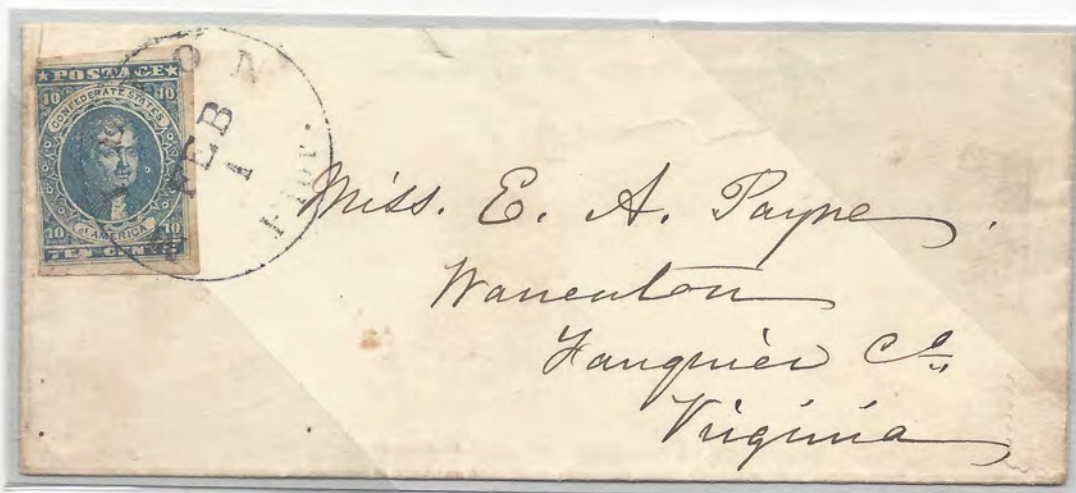 ★POSTAGE★
10 10
CONFEDERATE STATES
of AMERICA
10 10
TEN CENTS
FEB
1
Miss. E. A. Payne.
Warrenton
Fauquier Co.
Virginia